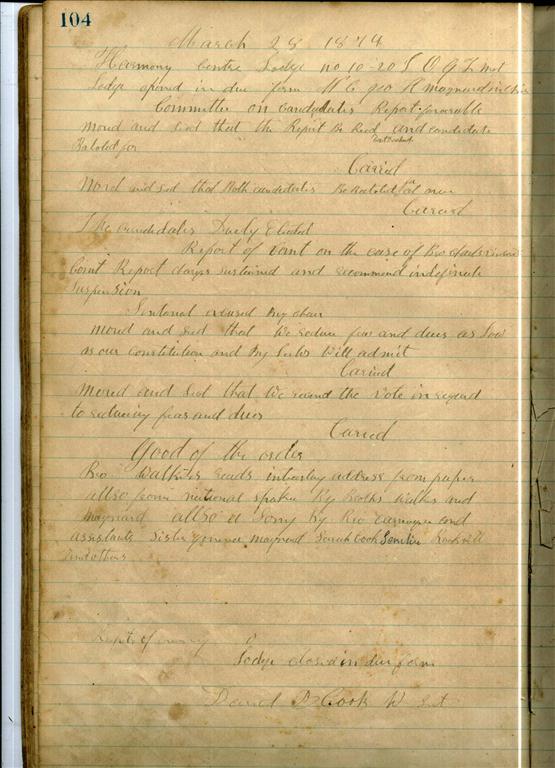 104
March 28 1874
Harmony Centre Lodge no 10-20 I O G T met
Lodge opened in due form W C geo R maynard in chair
Committee on candidates Report favorable
moved and secd that the Report Be Recd and candidate
Baloted for
Caried
Moved and secd that Both candidates Be Baloted for at once
Caried
The candidates Duely Elected
Report of comt on the case of Bro
Comt Report charges sustained and recommend indefinite
suspension
Sentanal excused By chair
moved and secd that we reduce fees and dues as low
as our constitution and By Laws will admit
Caried
moved and secd that we resind the vote in regard
to reducing fees and dues
Caried
Good of the order
Bro Walker reads address from paper
allso from national speaker By Broths Walker and
maynard allso a song By Bro and
assistants Sister maynard Sarah Cook
and others
Lodge closed in due form
Daniel D Cook W Sect